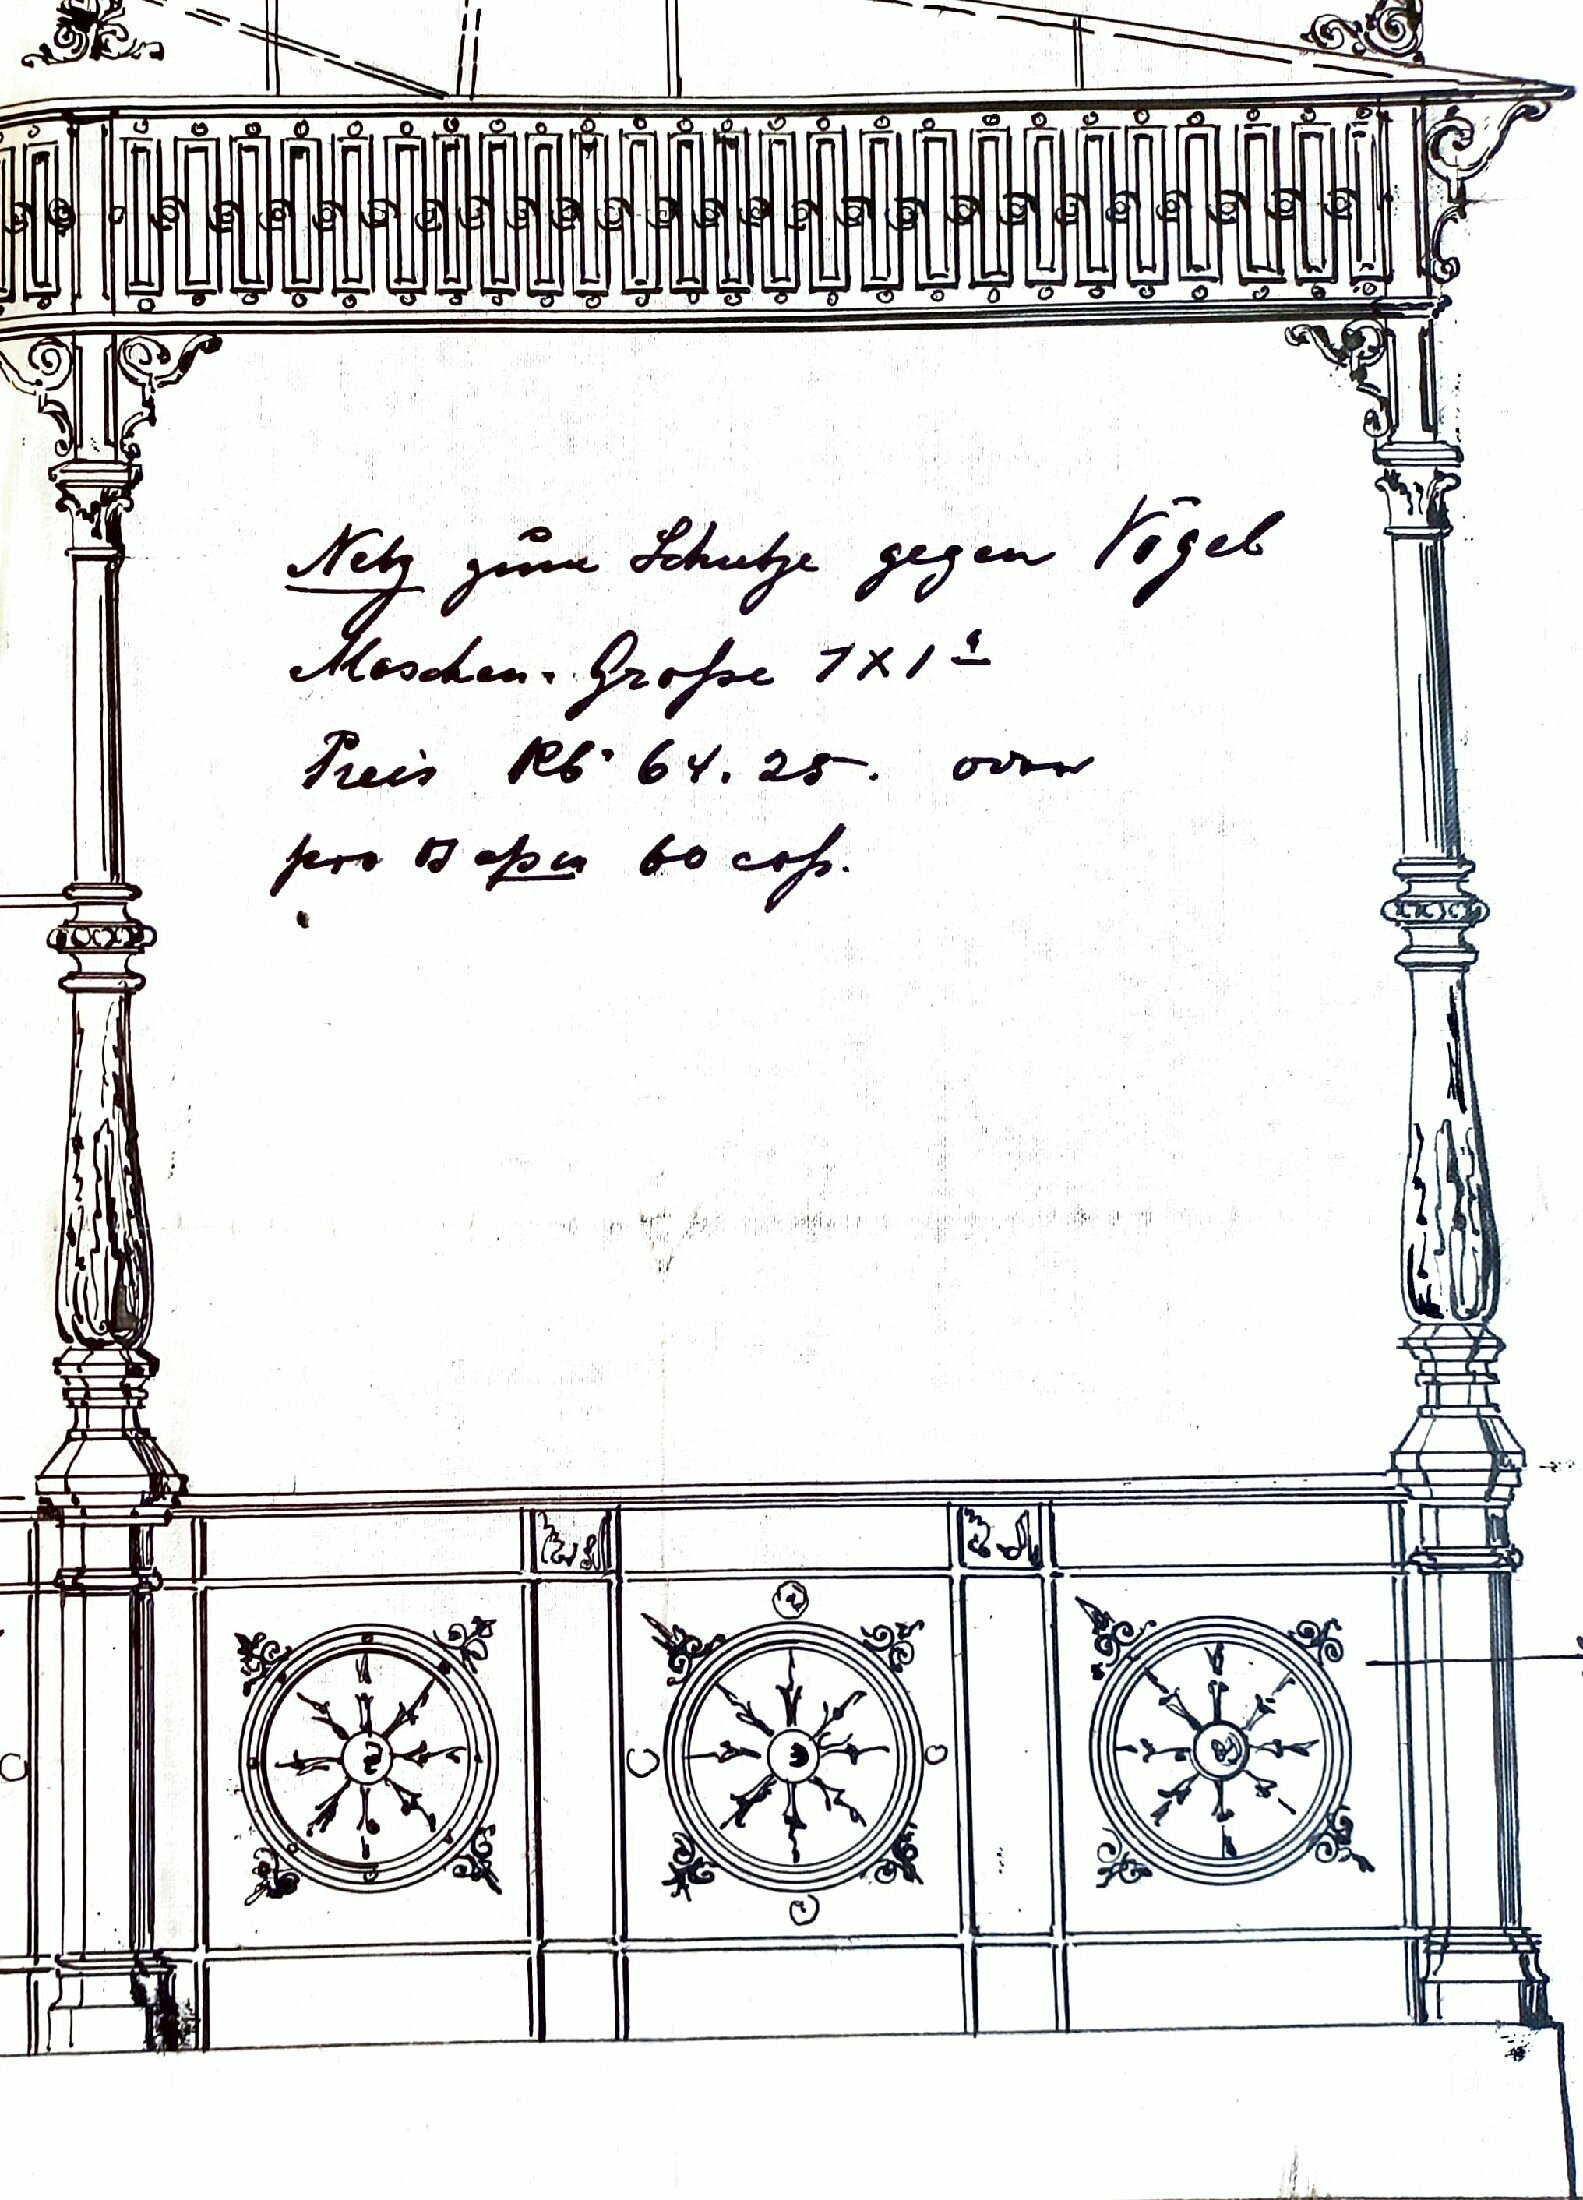 Netz zum Schutze gegen Vögel
Maschen-Große 1 x 1"
Preis Rb. 64.25. oder
pro □ 60 cop.